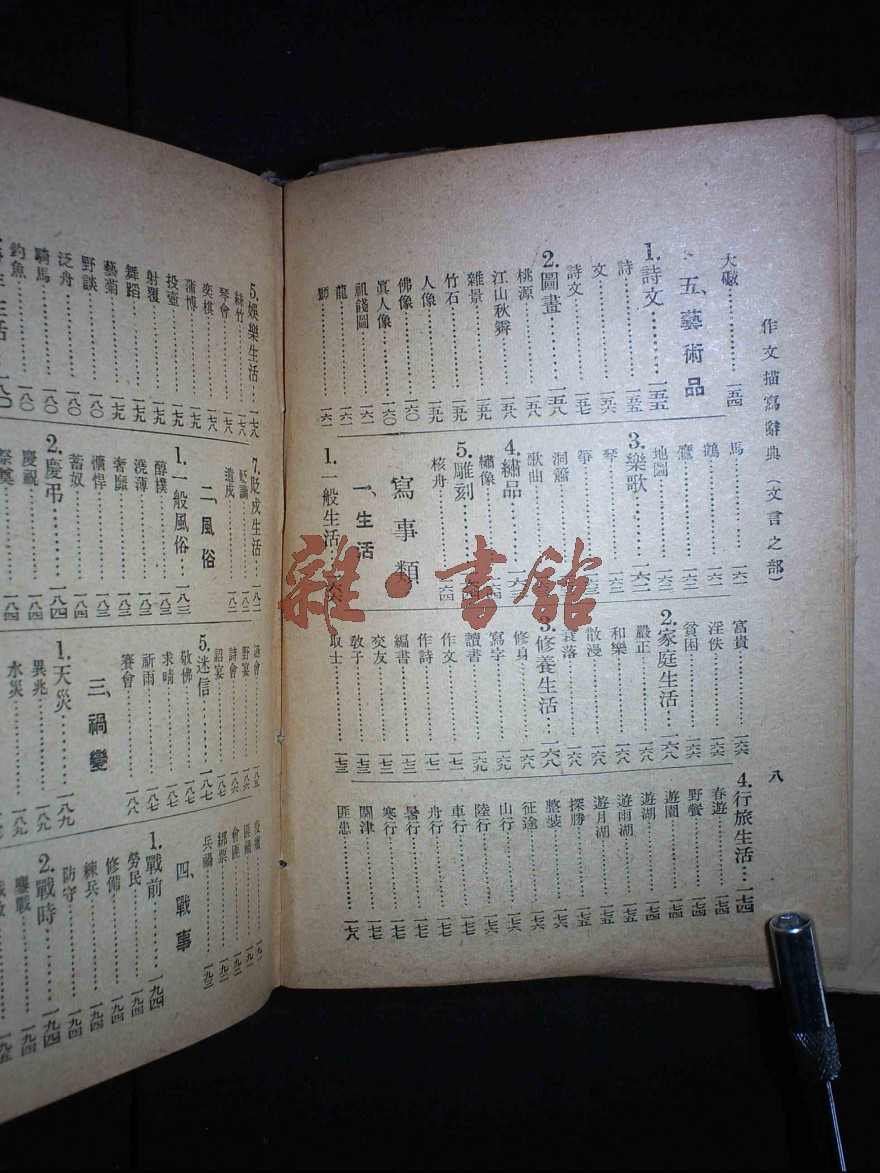 作文描寫辭典（文言之部）
八
大礮⋯⋯一五四
五、藝術品
1.詩文⋯⋯一五五
詩⋯⋯一五五
文⋯⋯一五六
詩文⋯⋯一五七
2.圖畫⋯⋯一五八
桃源⋯⋯一五八
江山秋霽⋯⋯一五八
雜景⋯⋯一五九
竹石⋯⋯一五九
人像⋯⋯一五九
佛像⋯⋯一六〇
眞人像⋯⋯一六〇
祖餞圖⋯⋯一六一
龍⋯⋯一六一
獅⋯⋯一六一
馬⋯⋯一六一
鶴⋯⋯一六一
鷹⋯⋯一六二
地圖⋯⋯一六二
3.樂歌⋯⋯一六二
琴⋯⋯一六二
箏⋯⋯一六三
洞簫⋯⋯
歌曲⋯⋯
4.繡品⋯⋯一六三
繡像⋯⋯一六四
5.雕刻⋯⋯一六四
核舟⋯⋯一六四
寫事類
一、生活
1.一般生活⋯⋯一六六
富貴⋯⋯一六六
淫佚⋯⋯一六六
貧困⋯⋯一六六
2.家庭生活⋯⋯一六八
嚴正⋯⋯一六八
和樂⋯⋯一六八
散漫⋯⋯一六八
衰落⋯⋯一六八
3.修養生活⋯⋯一六八
修身⋯⋯一六九
寫字⋯⋯一六九
讀書⋯⋯一六九
作文⋯⋯一七一
作詩⋯⋯一七二
編書⋯⋯一七二
交友⋯⋯一七二
敎子⋯⋯一七三
取士⋯⋯一七三
4.行旅生活⋯⋯一七四
春遊⋯⋯一七四
野餐⋯⋯一七四
遊園⋯⋯一七四
遊湖⋯⋯一七四
遊雨湖⋯⋯一七五
遊月湖⋯⋯一七五
探勝⋯⋯一七五
整裝⋯⋯一七六
征途⋯⋯一七六
山行⋯⋯一七六
陸行⋯⋯一七七
車行⋯⋯一七七
舟行⋯⋯一七七
暑行⋯⋯一七七
寒行⋯⋯一七七
關津⋯⋯一七七
匪患⋯⋯一七八
5.娛樂生活⋯⋯一七八
絲竹⋯⋯一七八
琴會⋯⋯一七八
奕棋⋯⋯一七九
蒲博⋯⋯一七九
投壺⋯⋯一七九
射覆⋯⋯一七九
舞蹈⋯⋯一七九
藝菊⋯⋯一七九
野談⋯⋯一八〇
泛舟⋯⋯一八〇
騎馬⋯⋯一八〇
釣魚⋯⋯一八〇
7.貶戍生活⋯⋯一八二
貶謫⋯⋯一八二
遣戍⋯⋯一八二
二、風俗
1.一般風俗⋯⋯一八三
醇樸⋯⋯一八三
澆薄⋯⋯一八三
奢靡⋯⋯一八三
獷悍⋯⋯一八三
蓄奴⋯⋯一八四
2.慶弔⋯⋯一八四
慶祝⋯⋯一八四
祭奠⋯⋯一八四
酒會⋯⋯
野宴⋯⋯一八六
詩會⋯⋯一八六
詔宴⋯⋯一八七
5.迷信⋯⋯一八七
敬佛⋯⋯一八七
求晴⋯⋯一八七
祈雨⋯⋯一八七
賽會⋯⋯一八八
三、禍變
1.天災⋯⋯一八九
異兆⋯⋯一八九
水災⋯⋯
匪禍⋯⋯
會匪⋯⋯
綁票⋯⋯一九二
兵禍⋯⋯一九三
四、戰事
1.戰前⋯⋯一九四
勞民⋯⋯一九四
修備⋯⋯一九四
練兵⋯⋯一九四
防守⋯⋯一九四
2.戰時⋯⋯一九四
鏖戰⋯⋯一九四
雜·書館